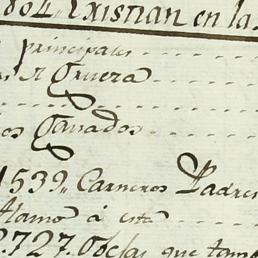 804 Existian en la
principales
Gruera
os Ganados
1539,, Carneros Padres
á esta
2.727. Obejas que tam